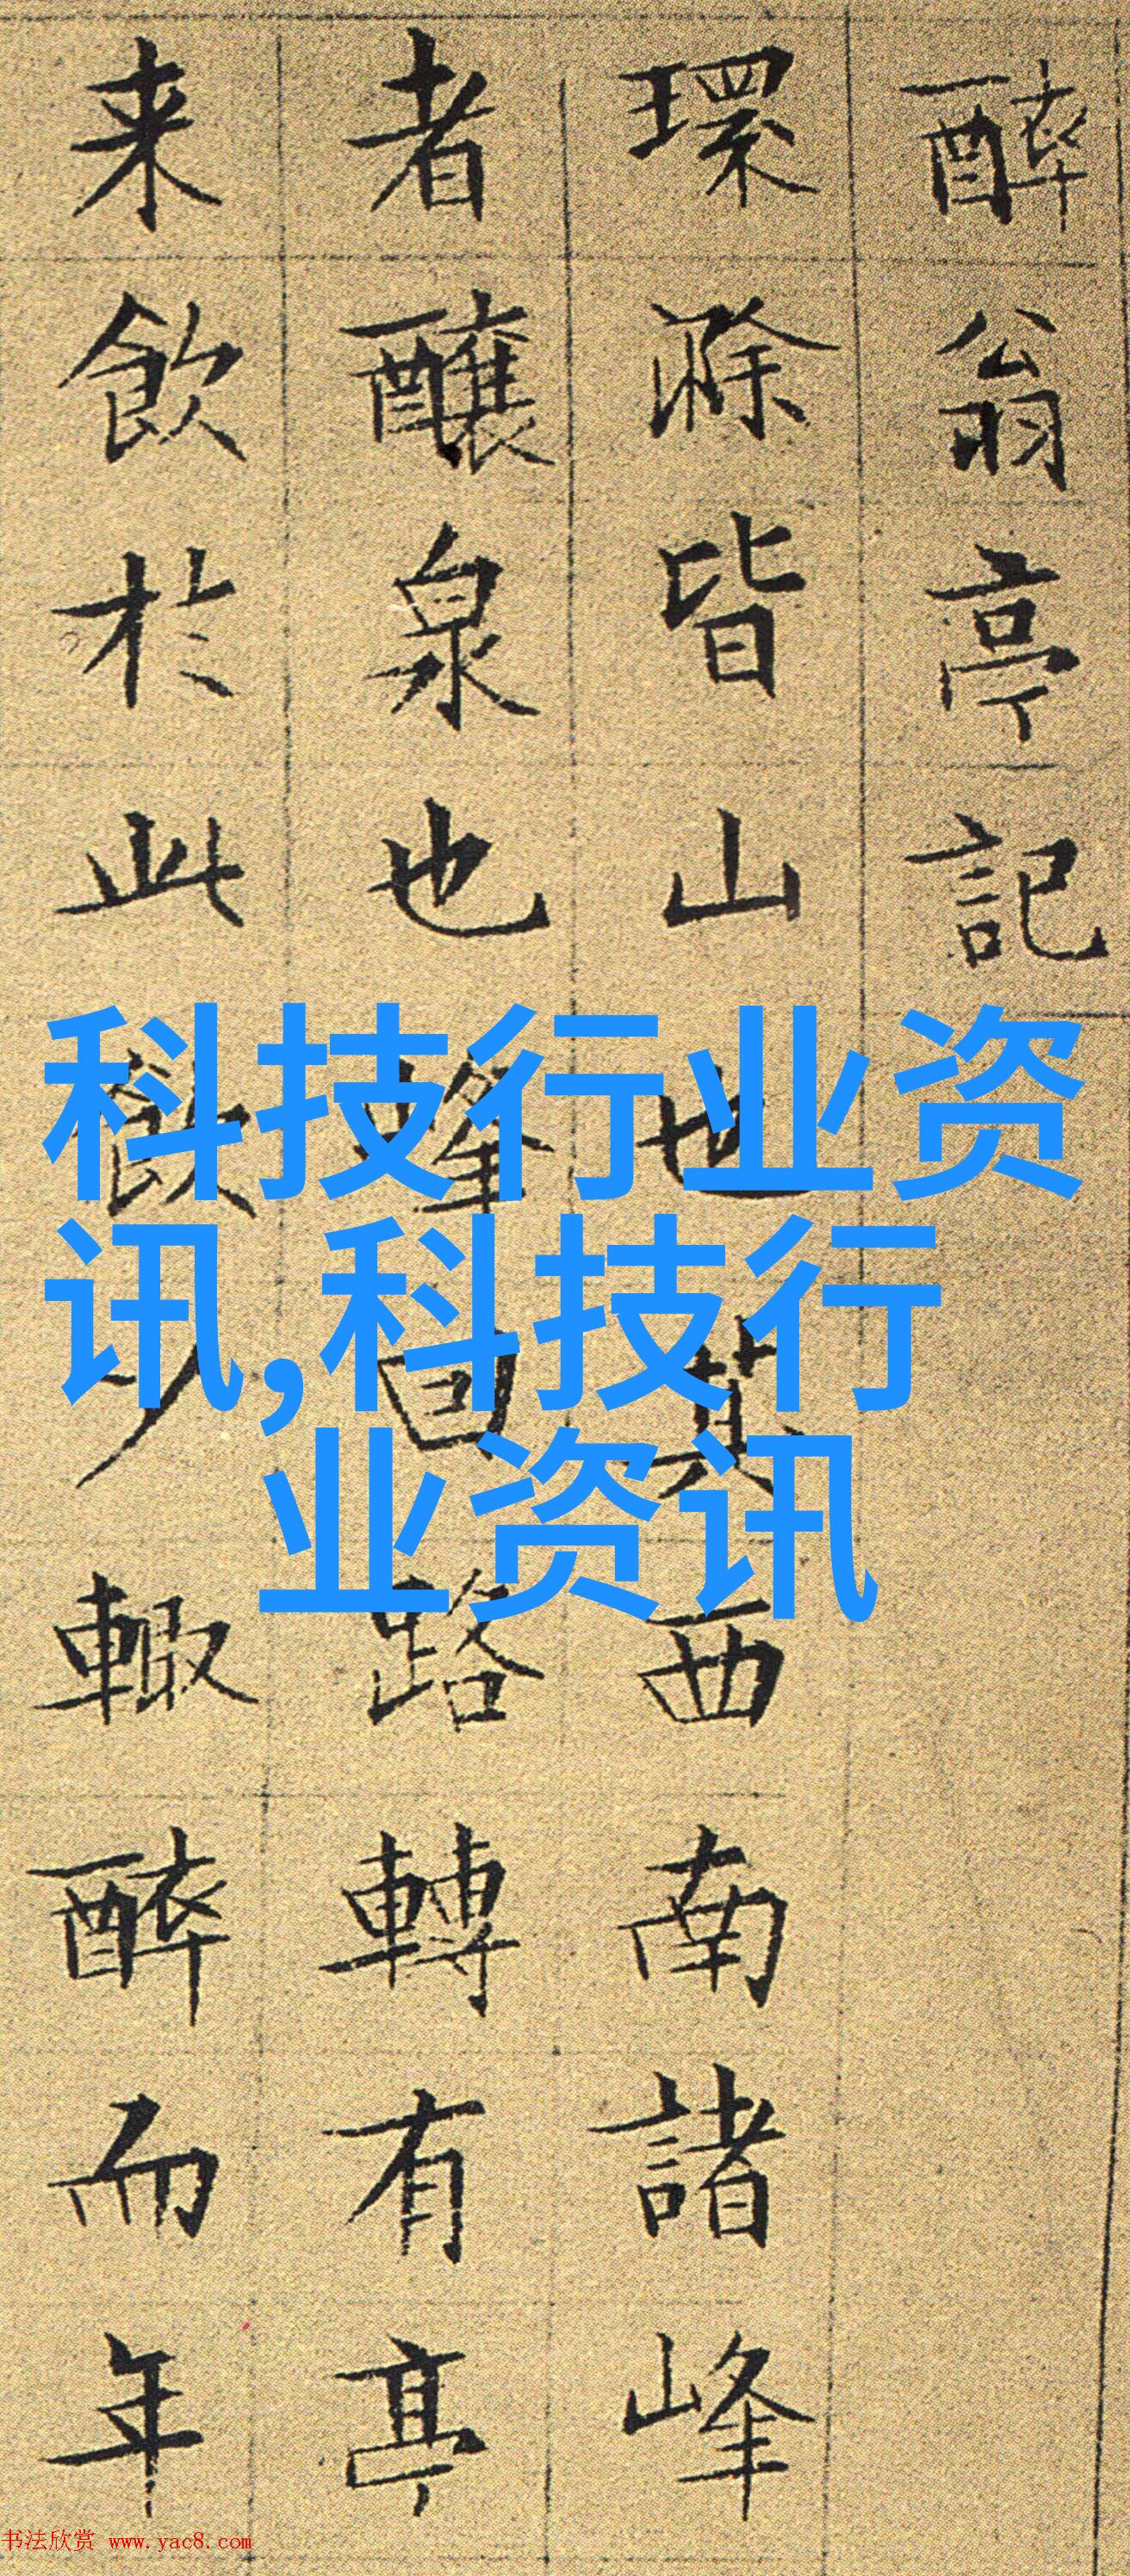 醉翁亭記
環滁皆山也其西南諸峰
者釀泉也峰回路轉有亭
来飲於此飲少輒醉而年
科技行业资
讯,科技行
业资讯
书法欣赏 www.yac8.com